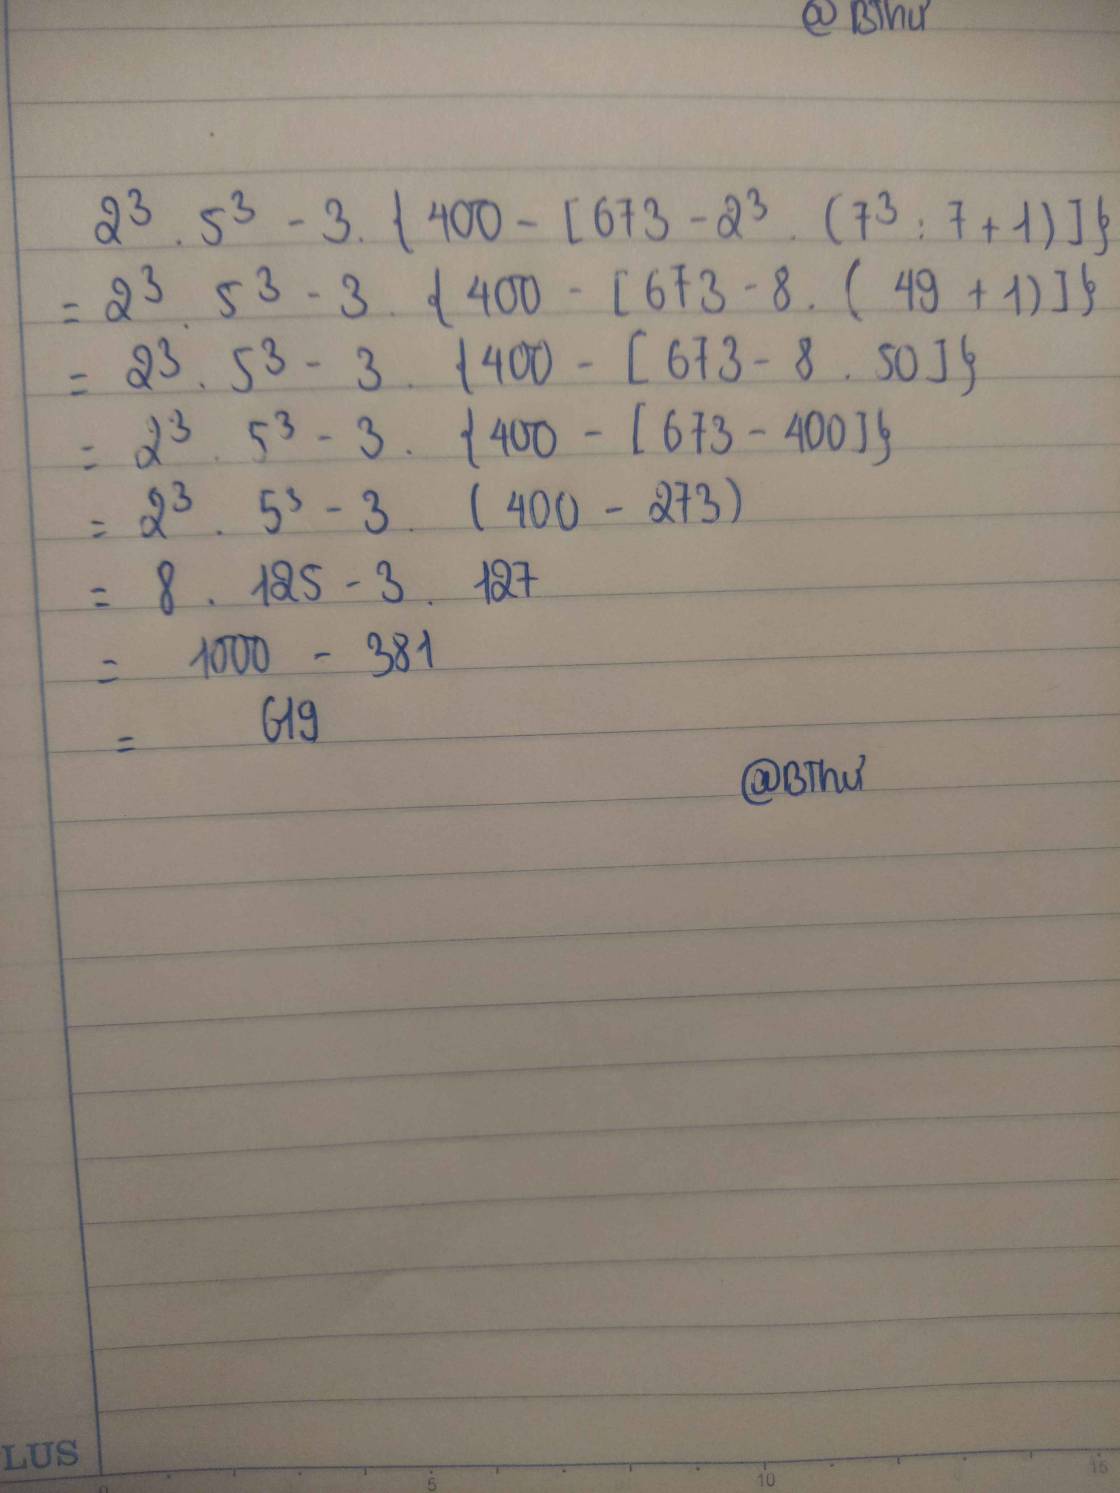 @BThư
2³ . 5³ - 3. { 400 - [ 673 - 2³ . (7³ : 7 + 1) ] }
= 2³ . 5³ - 3 . { 400 - [ 673 - 8 . ( 49 + 1) ] }
= 2³ . 5³ - 3 . { 400 - [ 673 - 8 . 50 ] }
= 2³ . 5³ - 3 . { 400 - [ 673 - 400 ] }
= 2³ . 5³ - 3 . ( 400 - 273 )
= 8 . 125 - 3 . 127
= 1000 - 381
= 619
@BThư
LUS
0 5 10 15